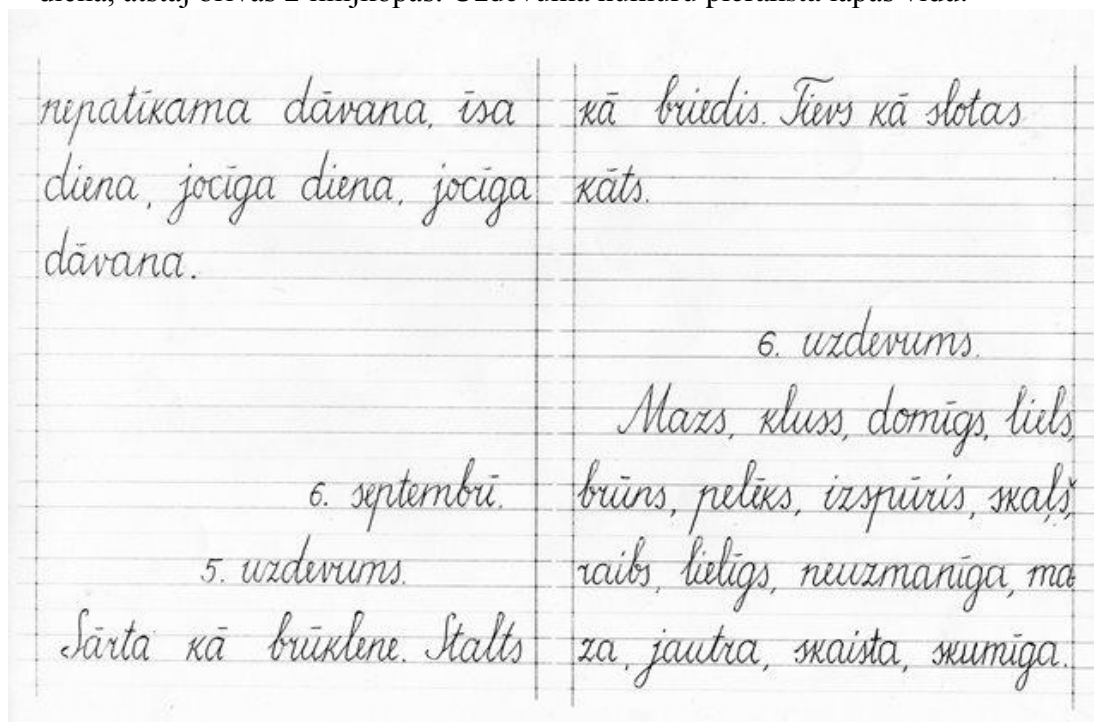 nepatīkama dāvana, īsa
diena, jocīga diena, jocīga
dāvana.
6. septembrī.
5. uzdevums.
Sārta kā brūklene. Stalts
kā briedis. Tievs kā slotas
kāts.
6. uzdevums.
Mazs, kluss, domīgs, liels,
brūns, pelēks, izspūris, skaļš,
raibs, lielīgs, neuzmanīga, ma
za, jautra, skaista, skumīga.